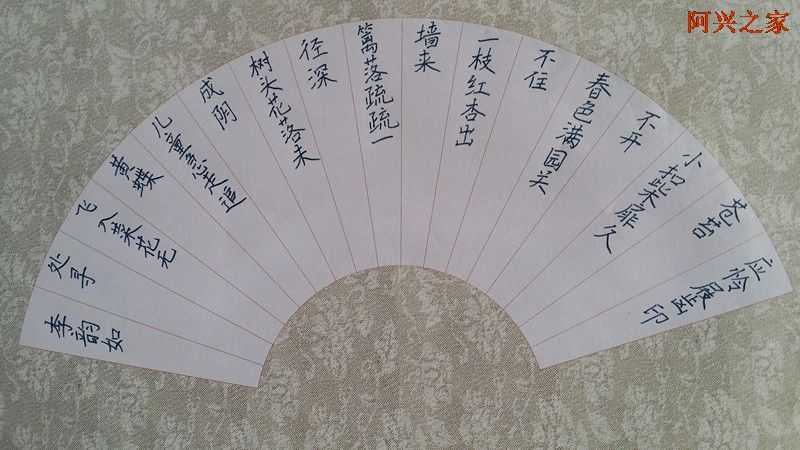 阿兴之家
应怜屐齿印
苍苔
小扣柴扉久
不开
春色满园关
不住
一枝红杏出
墙来
篱落疏疏一
径深
树头花落未
成阴
儿童急走追
黄蝶
飞入菜花无
处寻
李韵如